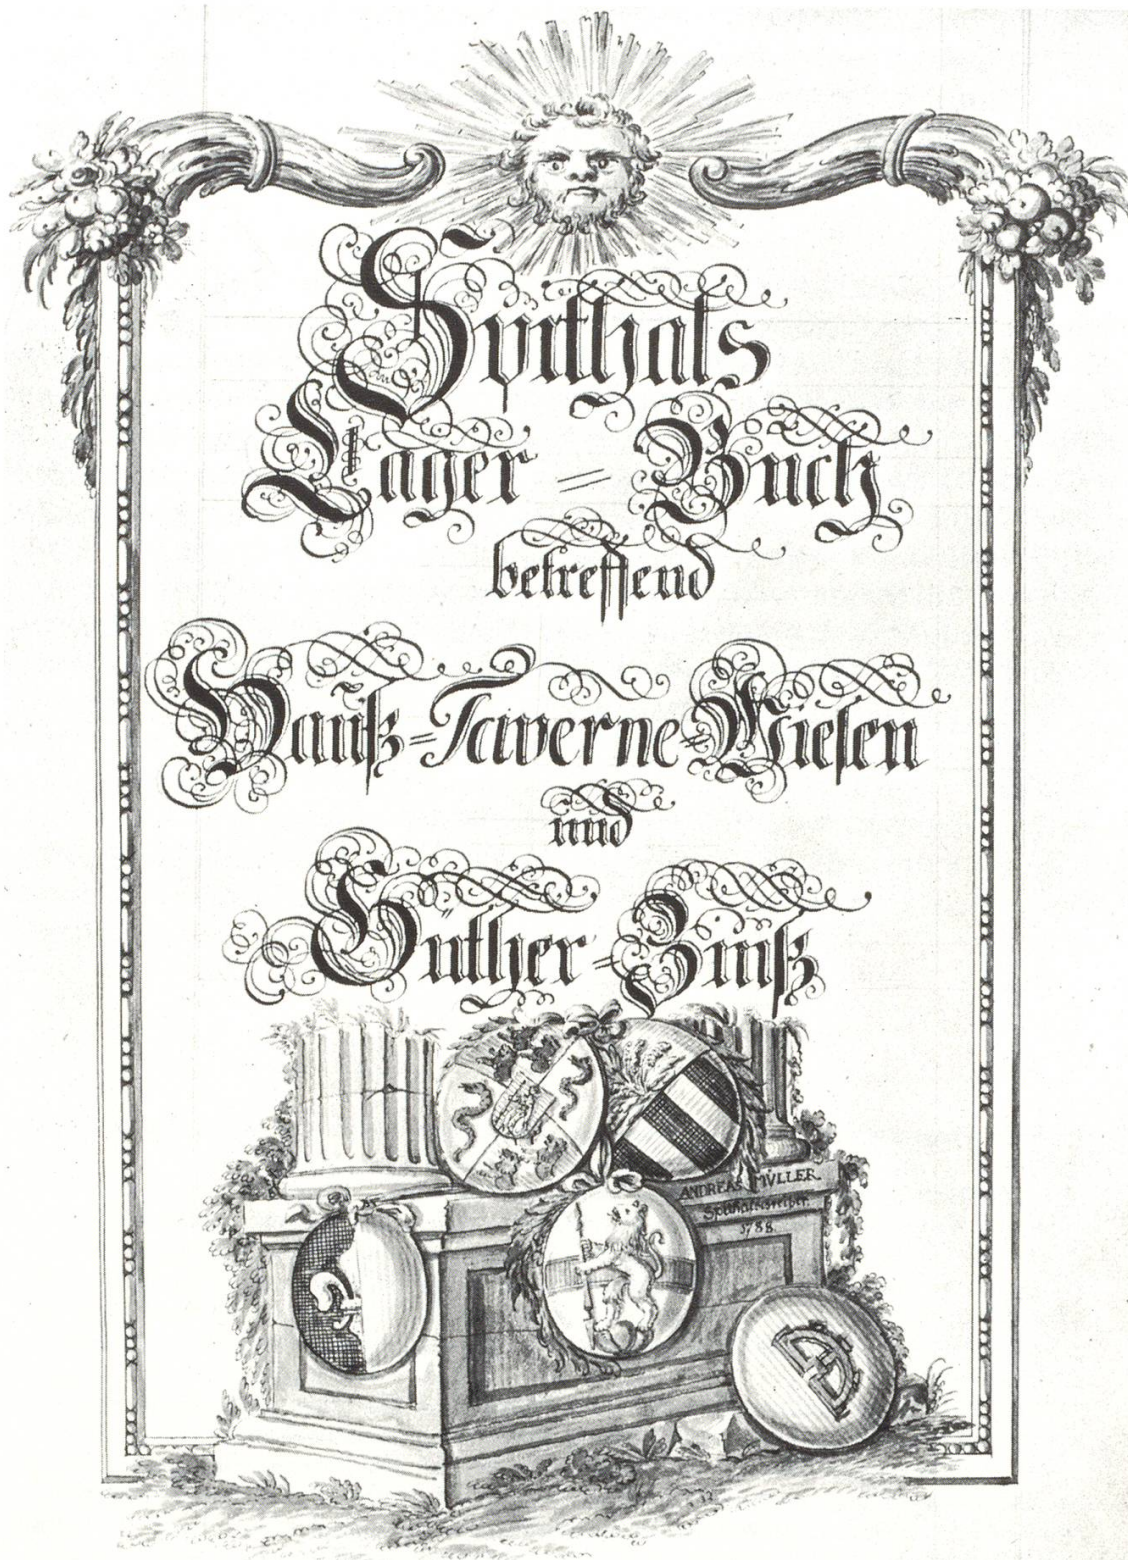 Spithals
Lager = Buch
betreffend
Hauß = Taverne = Wiesen
und
Güther = Zinß
ANDREAS MVLLER
1788